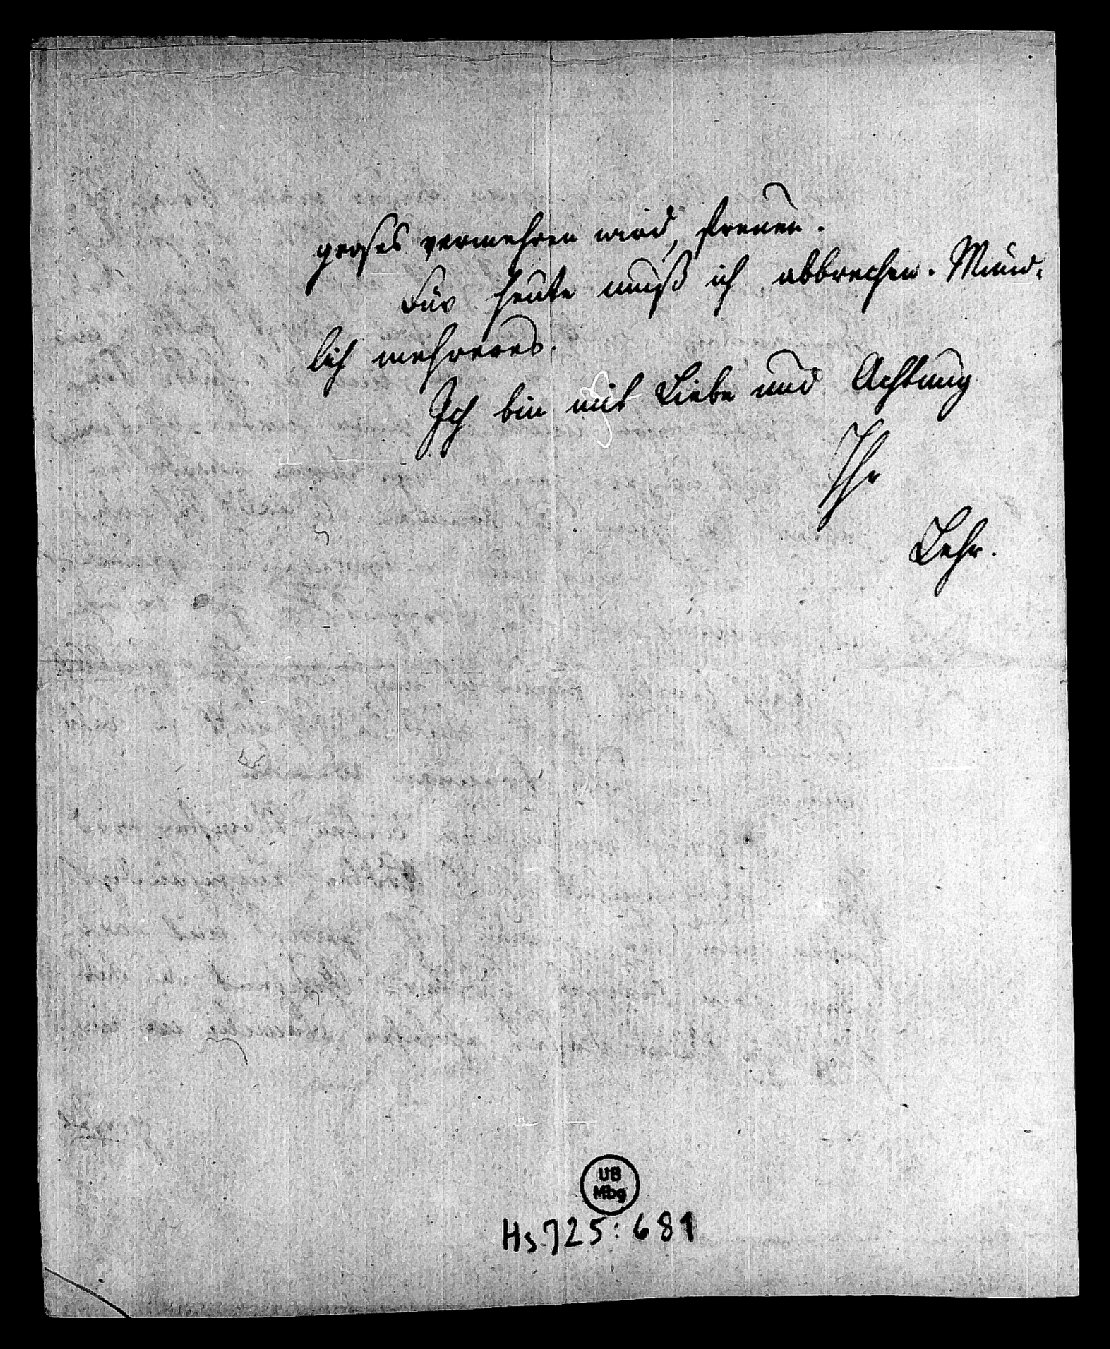 großes vermehren wird, freuen.
Für heute muß ich abbrechen. Münd-
lich mehreres.
Ich bin mit Liebe und Achtung
Ihr
Lehr.
UB
Mbg
Hs 725:681